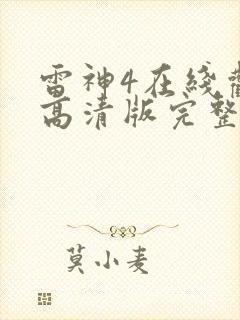 雷神4在线
高清版完整
莫小麦